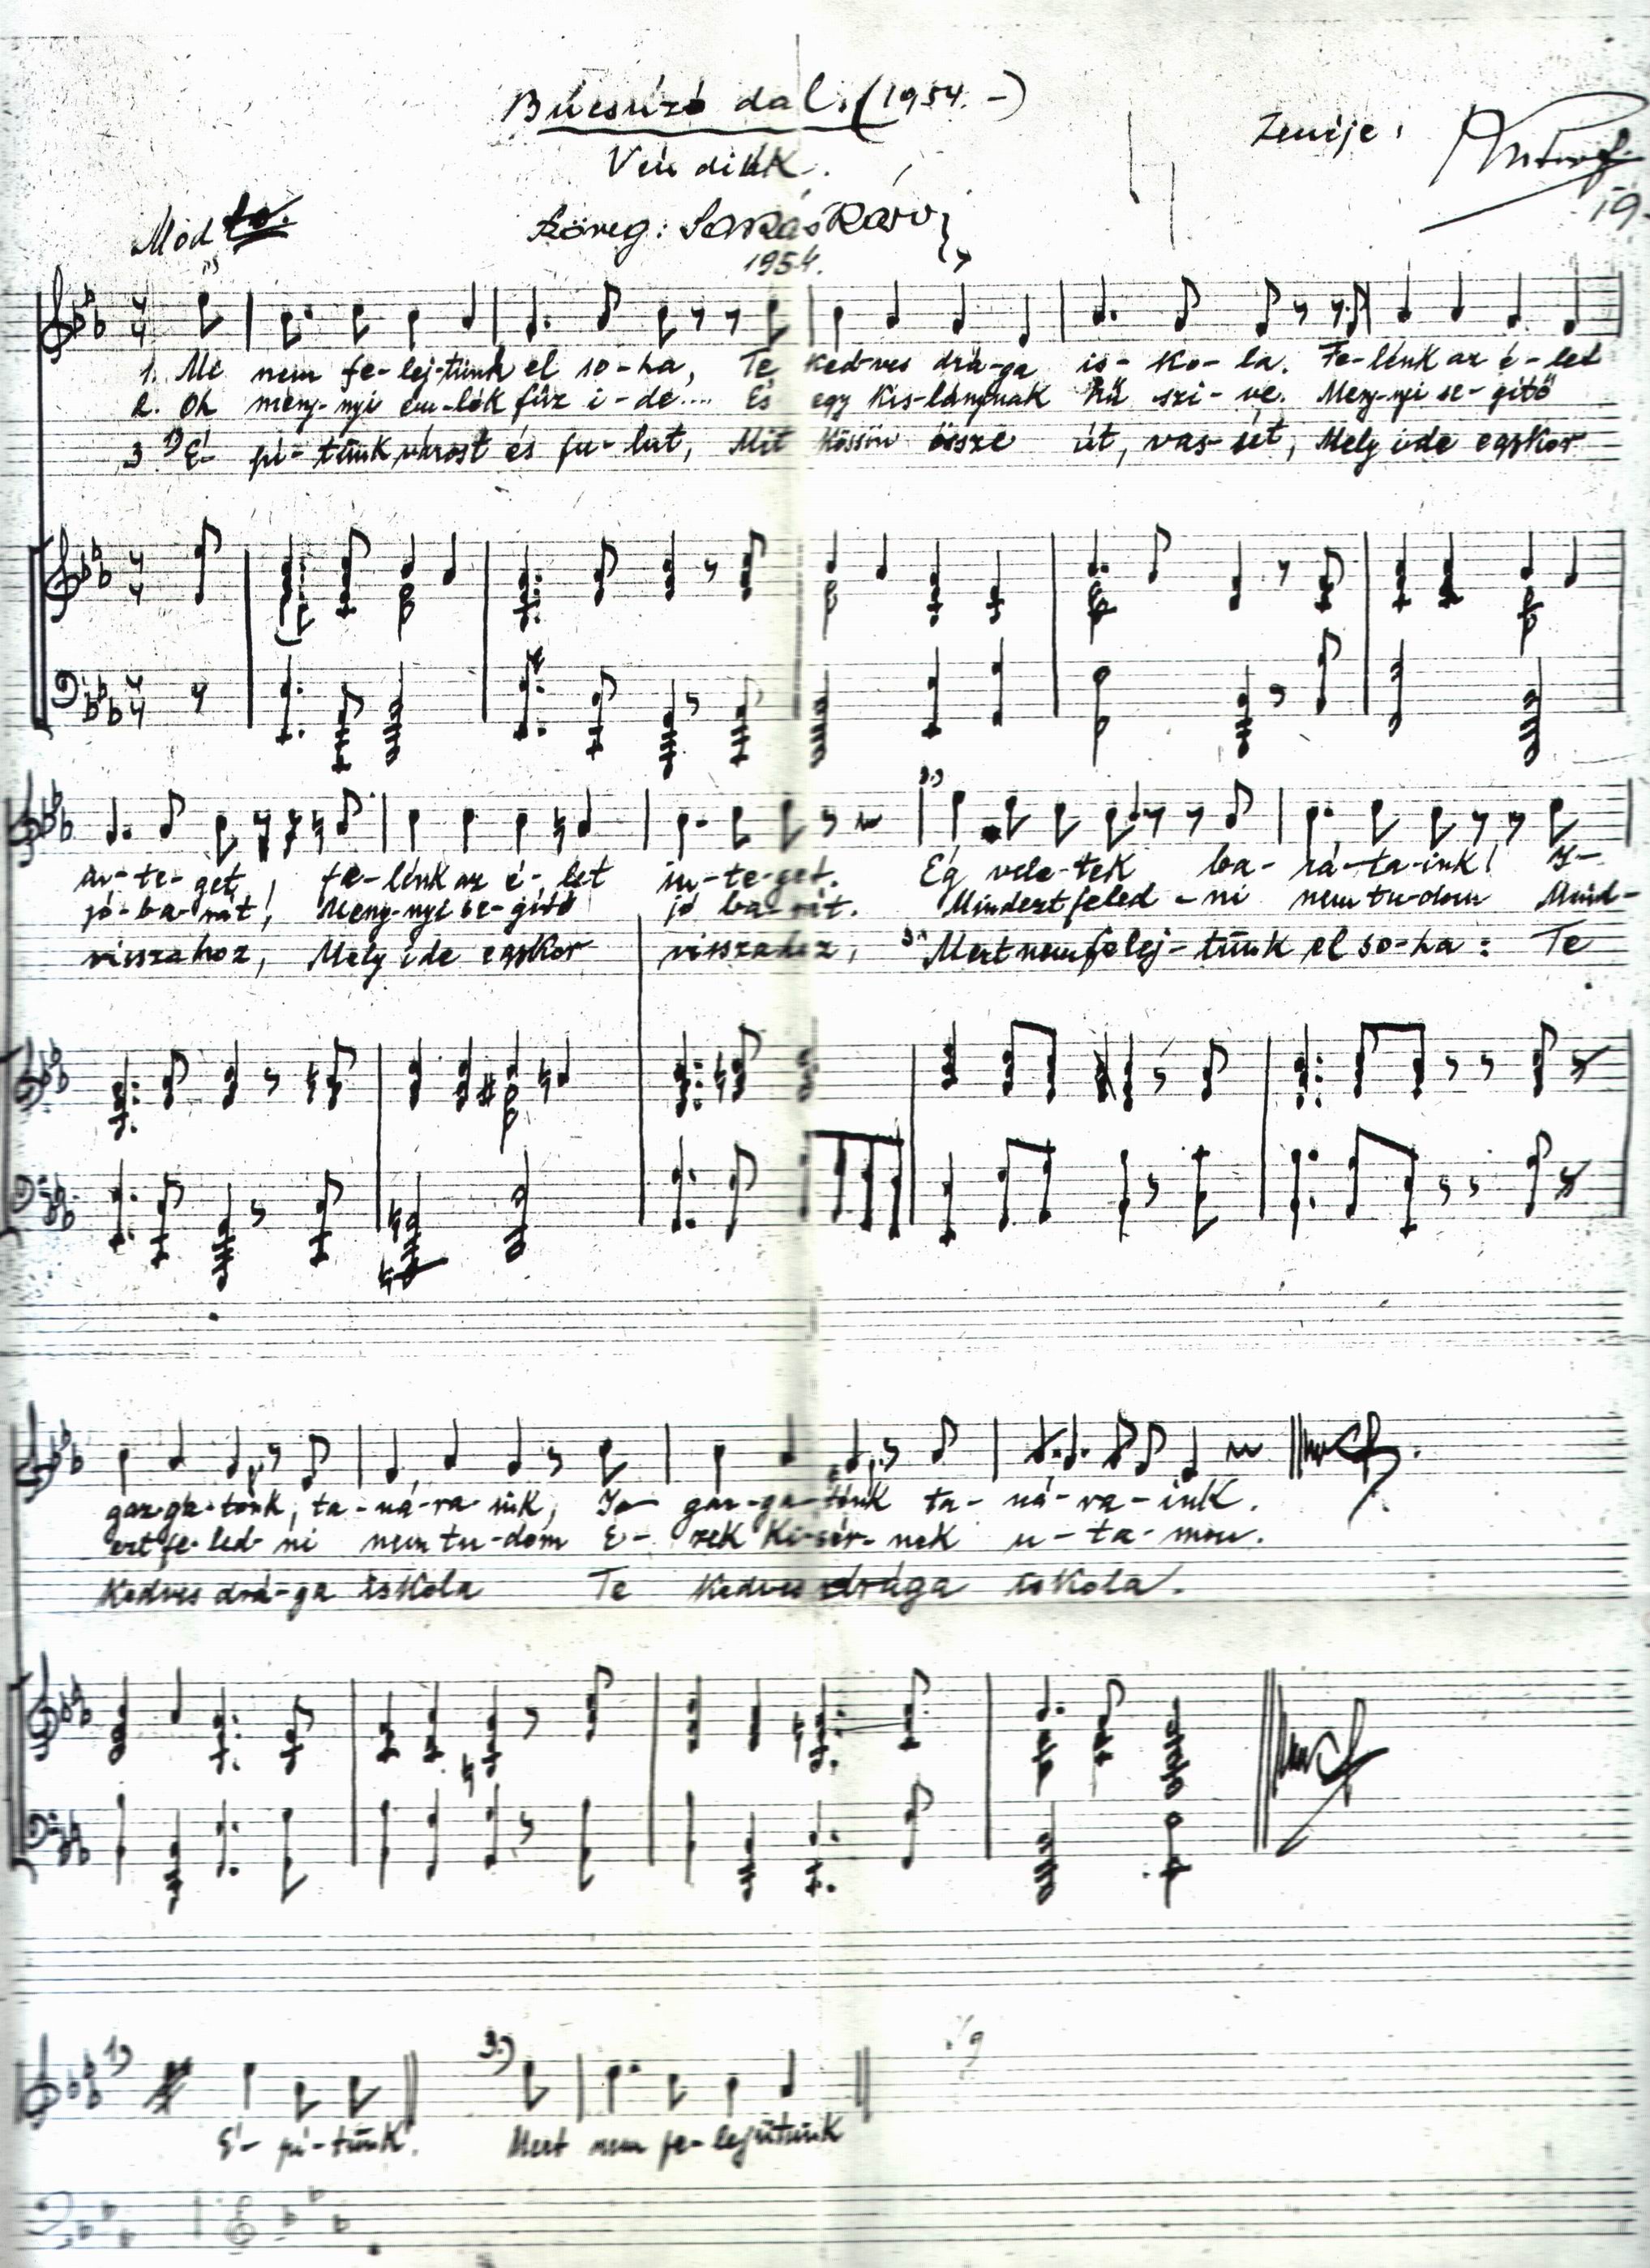 Búcsúzó dal. (1954. -)
Zenéje:
Vén diák.
19
Mod to.
Szöveg:
1954.
1. Me nem fe-lej-tünk el so-ha, Te ked-ves drá-ga is-ko-la. Fe-lénk az é-let
2. Oh meny-nyi em-lék fűz i-de.... És egy kis-lánynak hű szi-ve. Meny-nyi se-gitő
3 1) É- pi-tünk várost és fa-lut, Mit kössön össze út, vas-út, Mely ide egykor
in-te-get, fe-lénk az é-let in-te-get. Ég vele-tek ba-rá-ta-ink! I-
jó-ba-rát, Meny-nyi se-gitő jó ba-rát. Mindezt feled-ni nem tu-dom Mind-
visszahoz, Mely ide egykor visszahoz, 3) Mert nem felej-tünk el so-ha: Te
gaz-ga-tónk, ta-ná-ra-ink, I- gaz-ga-tónk ta-ná-ra-ink.
ezt fe-led-ni nem tu-dom E-zek ki-sér-nek u-ta-mon.
Kedves drá-ga iskola Te kedves drága iskola.
1) 3.)
É- pi-tünk. Mert nem fe-lejtünk